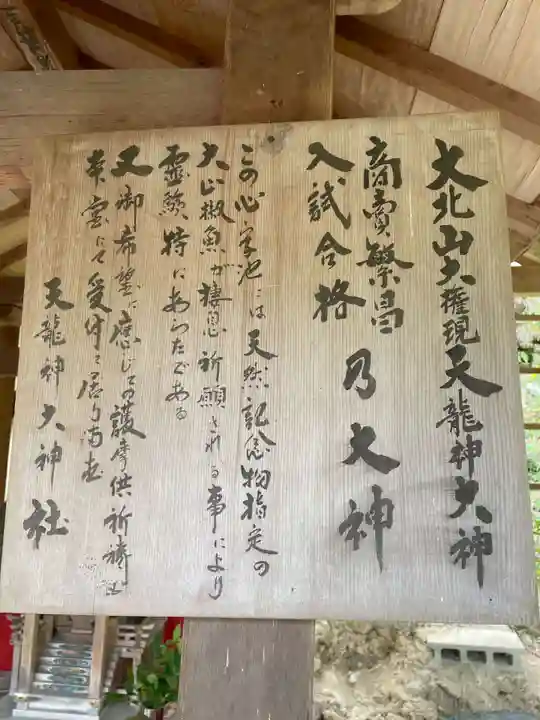 大北山大権現天龍神大神
商売繁昌
入試合格
乃大神
この心字池には天然記念物指定の
大山椒魚が棲息祈願される事により
霊験特にあらたである
又御希望に応じての護摩供祈祷は
本宮にて受付て居り〼
天龍神大神社